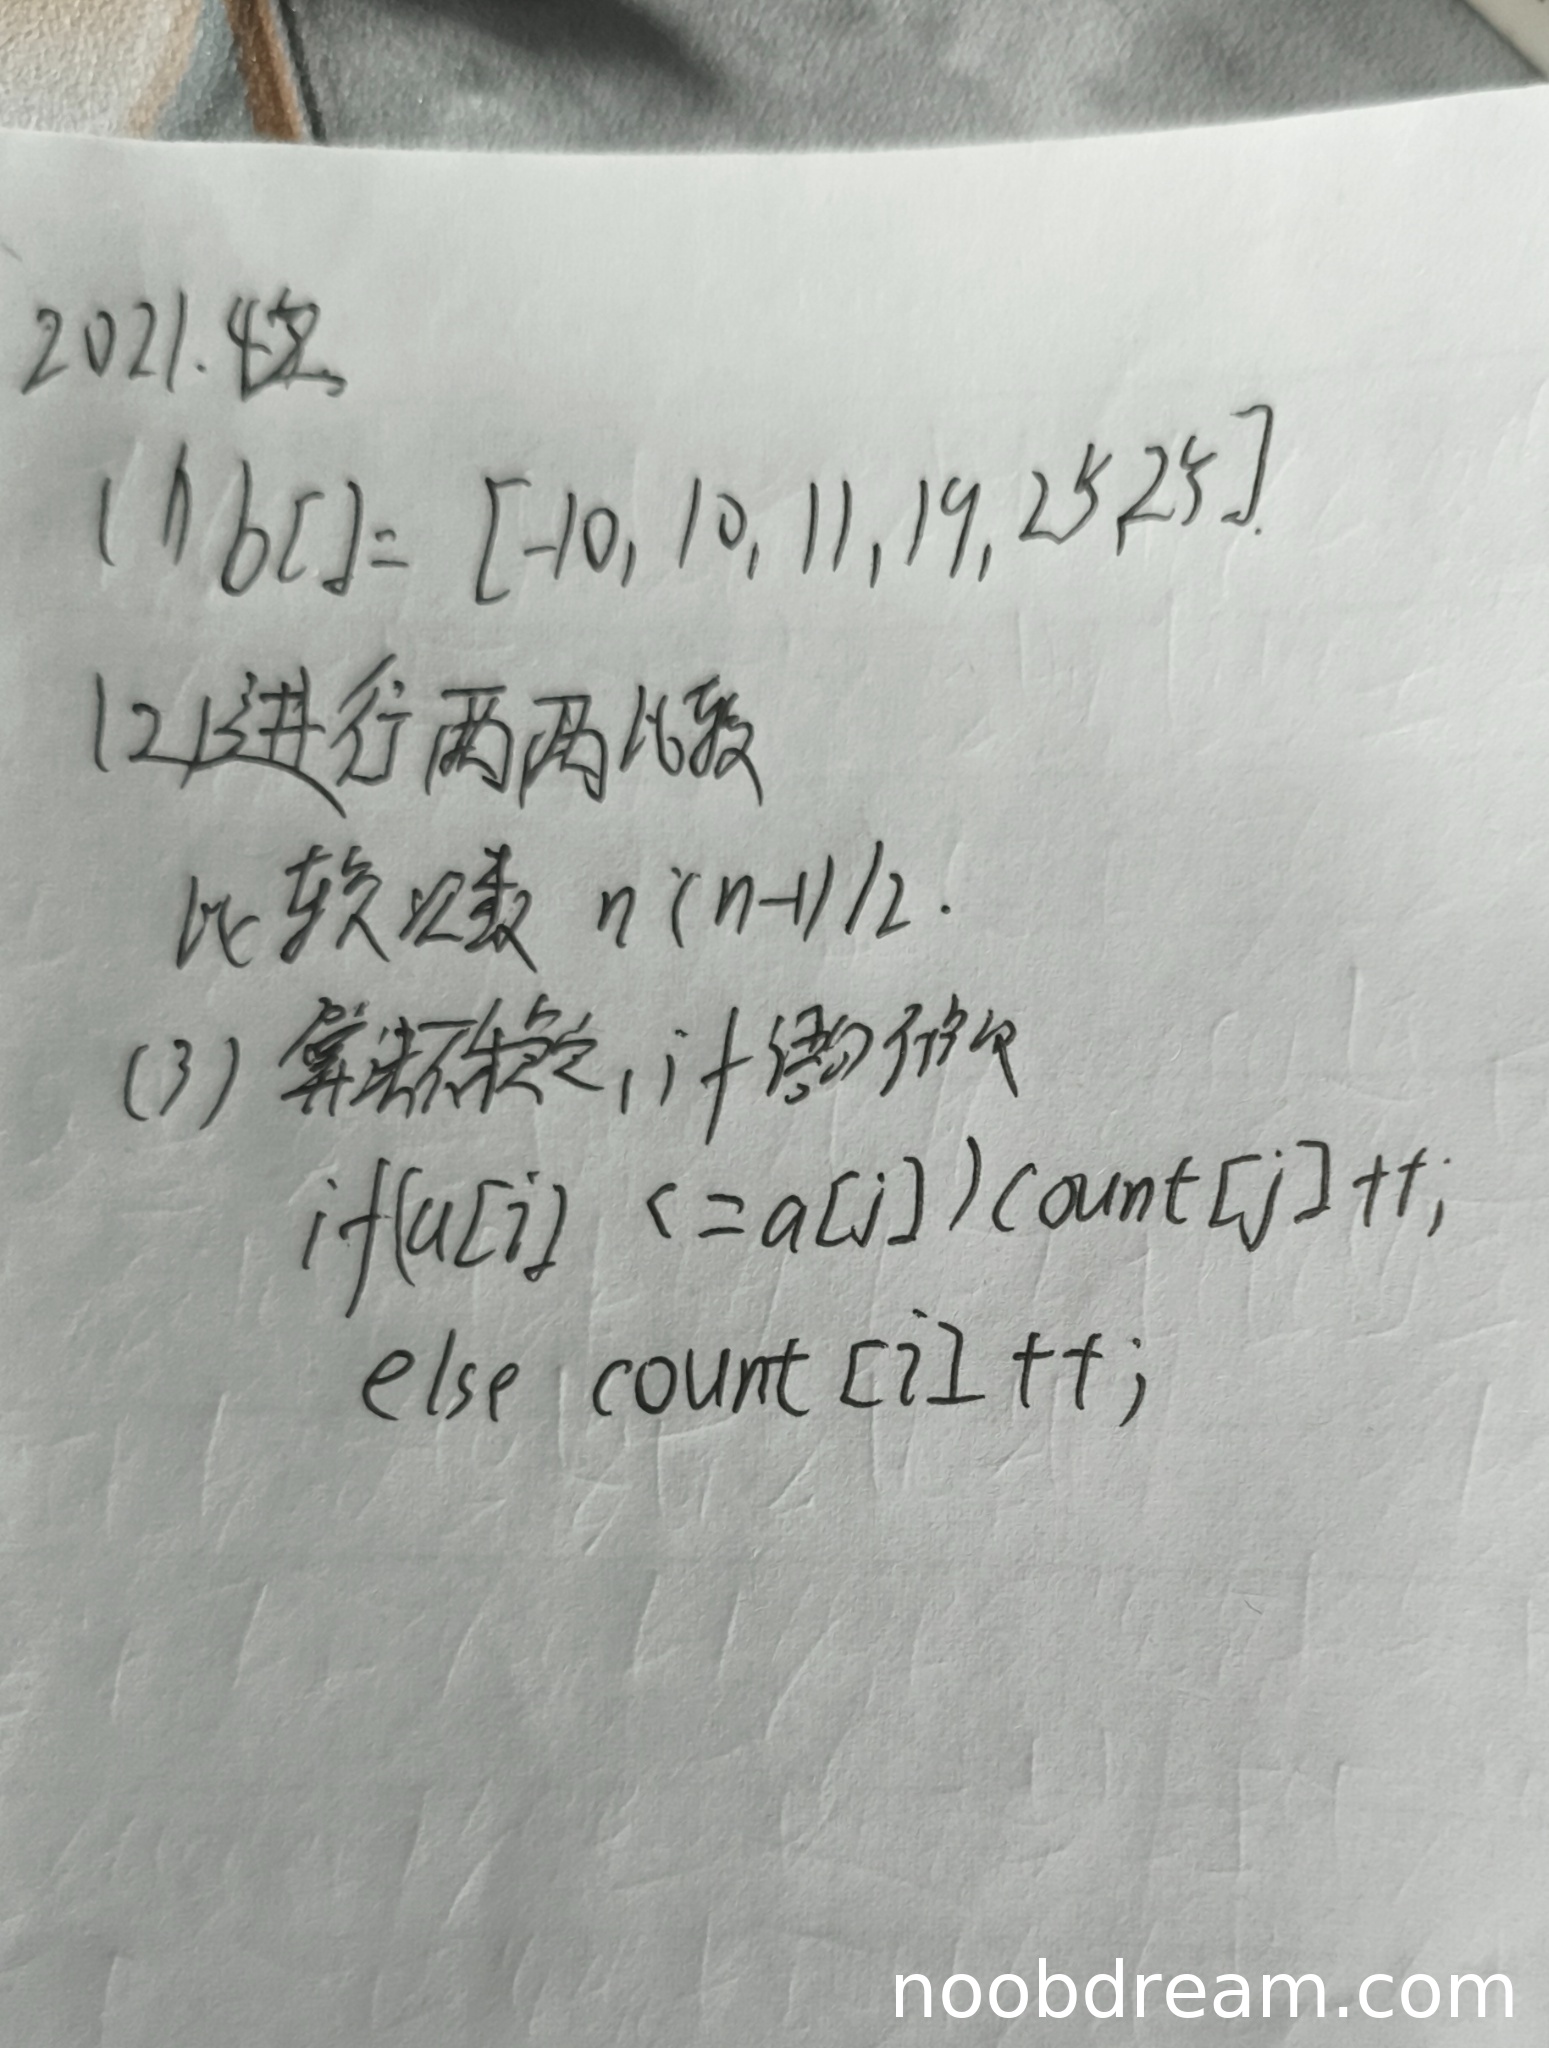 2021.42.
(1) b[]= [-10, 10, 11, 19, 25, 25].
(2) 进行两两比较
比较次数 n(n-1)/2.
(3) 算法不稳定, if 语句修改
if(a[i] <=a[j]) count[j]++;
else count [i]++;
noobdream.com